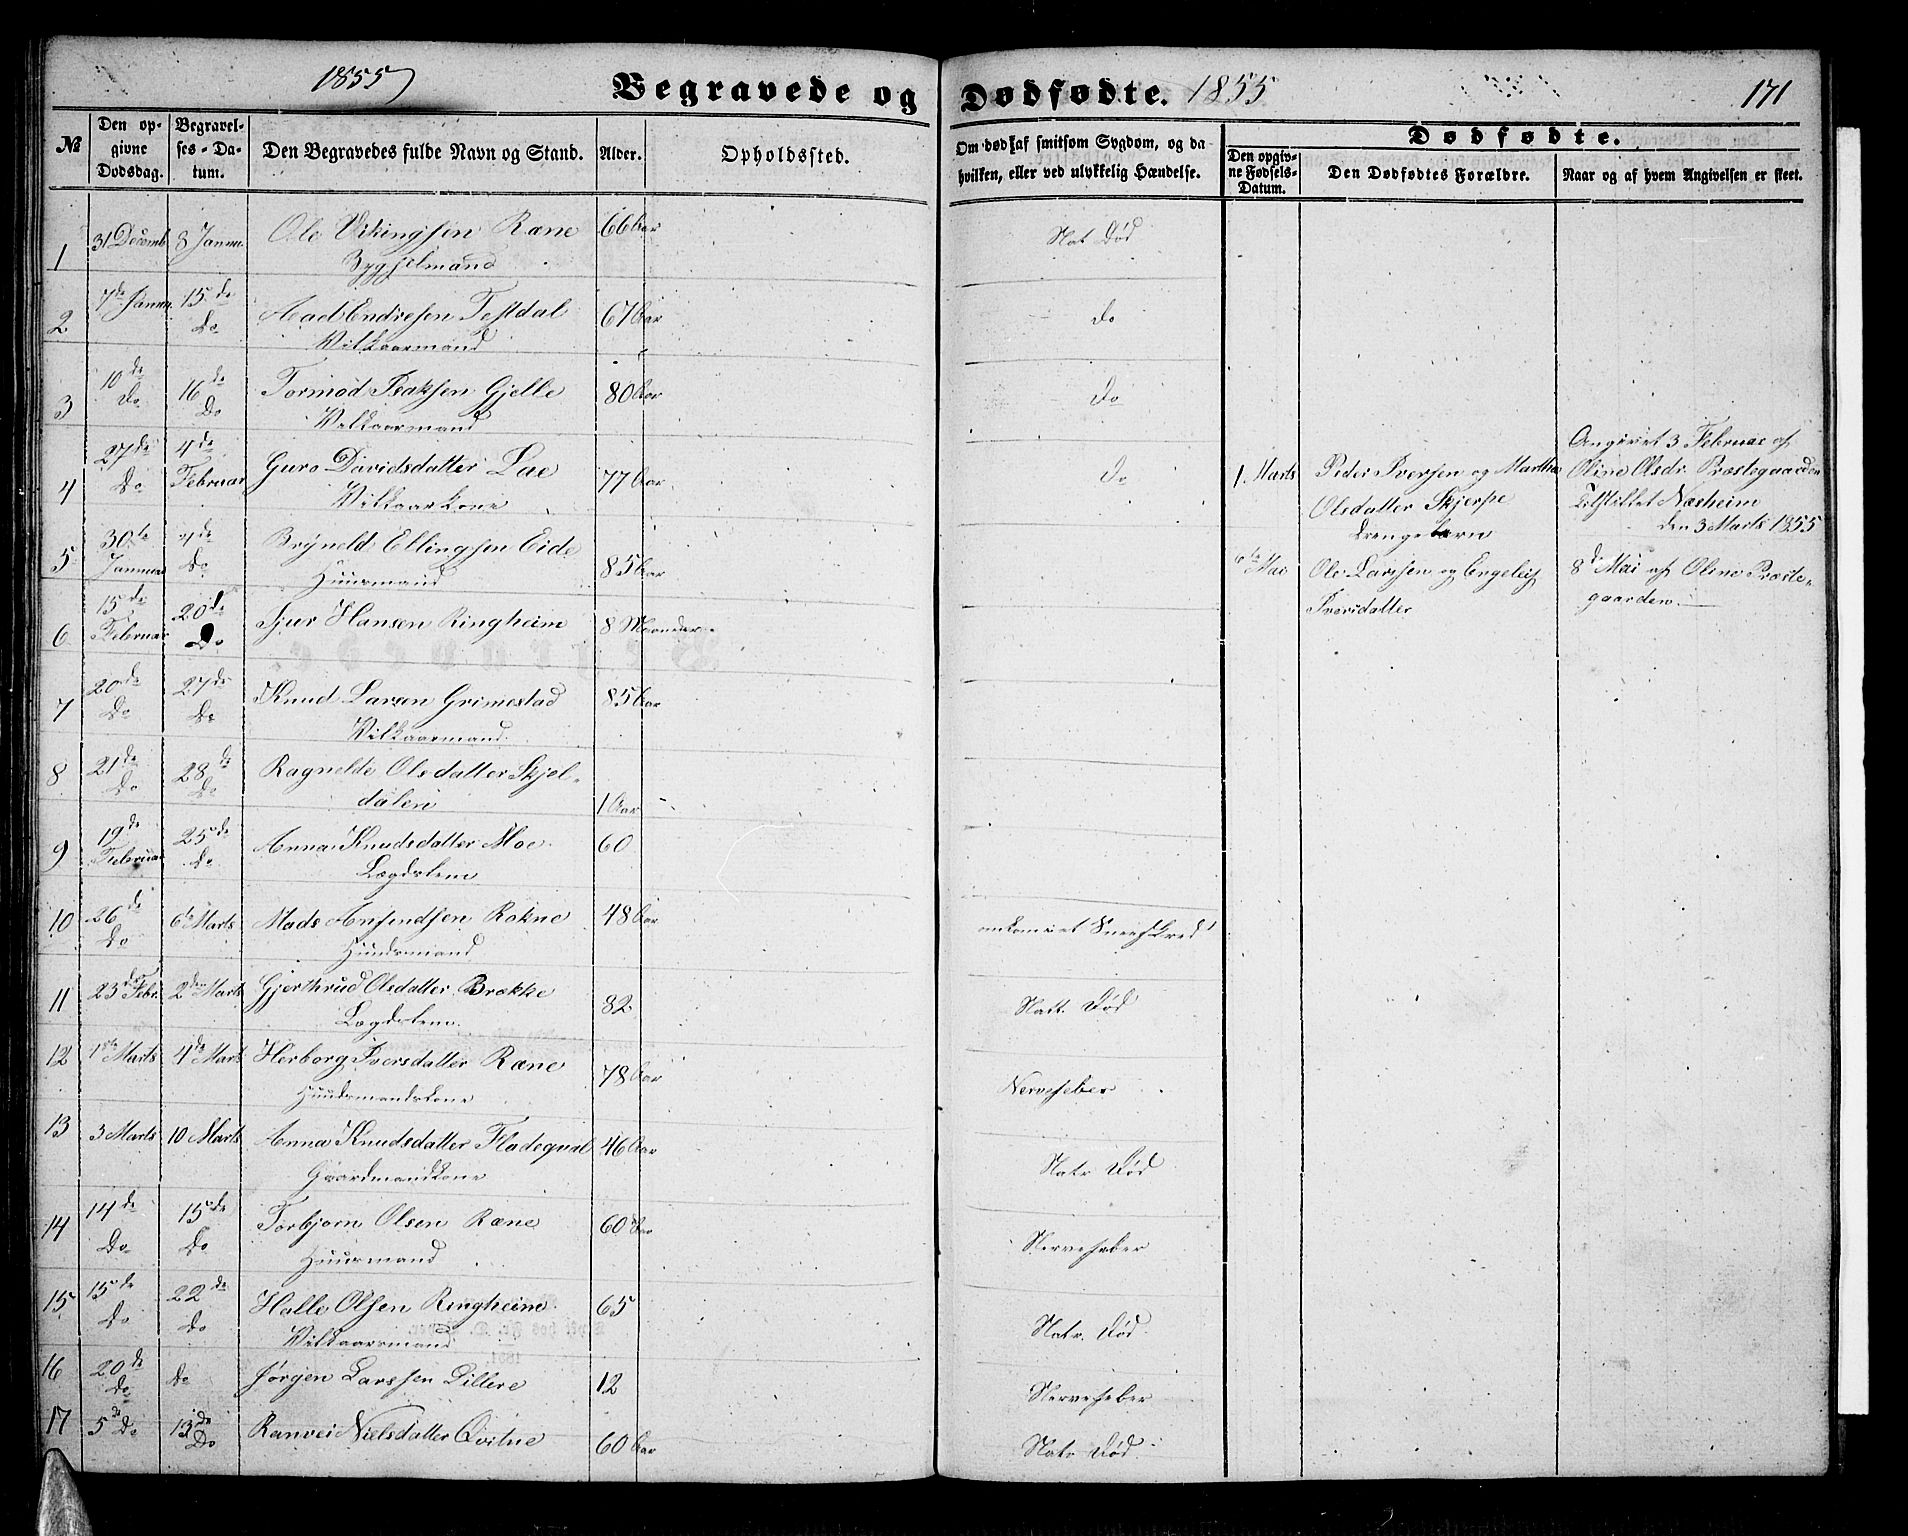 1855
Begravede og
Dødfødte. 1855
171
№
Den opgivne Dødsdag.
Begravelses-Datum.
Den Begravedes fulde Navn og Stand.
Alder.
Opholdssted.
Om død af smitsom Sygdom, og da
hvilken, eller ved ulykkelig Hændelse.
Dødfødte.
Den opgivne Fødsels-Datum.
Den Dødfødtes Forældre.
Naar og af hvem Angivelsen er skeet.
1 31 Decemb 8 Januar Ole Vikingsen Ræne 66 Aar Nat Død
2 7de Januar 15de Do Aad Endresen Testdal 67 Aar Do
Vilkaarmand
3 10de Do 16de Do Tormod Isaksen Gjelle 80 Aar Do
Vilkaarmand
4 27de Do 4de Februar Guro Davidsdatter Lae 77 Aar Do
Vilkaarkone
5 30te Januar Do Bryneld Ellingsen Eide 85 Aar
Huusmand
6 15de Februar 20de Do Sjur Hansen Ringheim 8 Maaneder
7 20de Do 27de Do Knud Larsen Grimestad 85 Aar
Vilkaarmand
8 21de Do 28de Do Ragnelde Olsdatter Skjel-
dalen 1 Aar
9 19de Februar 25de Do Anna Knudsdatter Moe 60
Lægdslem
10 26de Do 6te Marts Mads Amundsen Rokne 48 Aar omkom i et Sneeskred
Huusmand
11 23de Febr. 2den Marts Gjerthrud Olsdatter Brække 82 Natt. Død
Lægdslem
12 1ste Marts 4de Marts Herborg Iversdatter Ræne 78 Aar Nervefeber
Huusmandskone
13 3 Marts 10 Marts Anna Knudsdatter Fladequal 46 Aar Natr Død
Gaardmandkone
14 14de Do 15de Do Torbjorn Olsen Ræne 60 Aar Nervefeber
Huusmand
15 15de Do 22de Do Halle Olsen Ringheim 65 Natr. Død
Vilkaarsmand
16 20de Do Do Jørgen Larssen Lillere 12 Nervefeber
17 5te Do 13de Do Ranvei Nielsdatter Qvitne 60 Aar Natr Død
1. Marts Peder Iversen og Martha
Olsdatter Skjerpe
Drengebarn
Angivet 3 Februar af
Oline Olsdr. Præstegaarden
Næsheim
den 3 Marts 1855
6te Mai Ole Larssen og Engeleif
Iversdatter
8de Mai af Oline Præste-
gaarden.